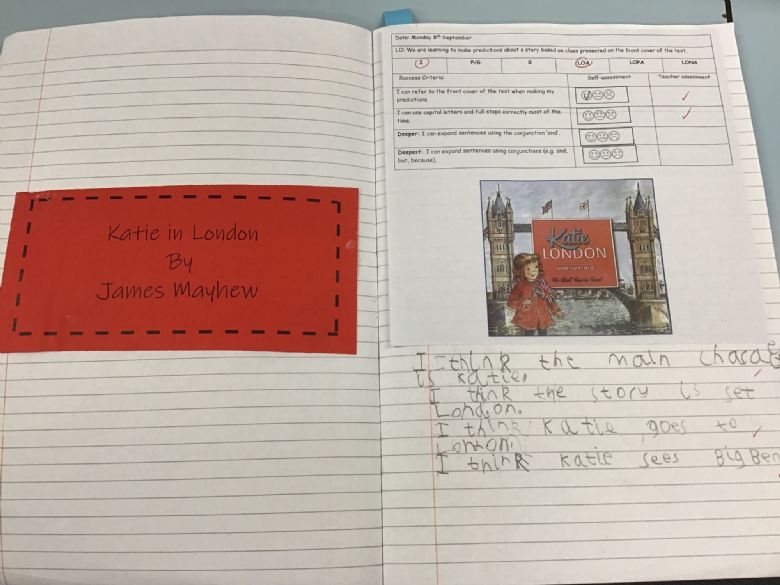 Katie in London
By
James Mayhew
Date: Monday 8th September
LO: We are learning to make predictions about a story based on clues presented on the front cover of the text.
I P/G S LOA LOPA LONA
Success Criteria Self-assessment Teacher assessment
I can refer to the front cover of the text when making my
predictions.
I can use capital letters and full stops correctly most of the
time.
Deeper: I can expand sentences using the conjunction 'and'.
Deepest: I can expand sentences using conjunctions (e.g. and,
but, because).
Katie
IN
LONDON
JAMES MAYHEW
I think the main
is katie.
I think the story is set
London.
I think Katie goes to
London
I think Katie sees Big Ben